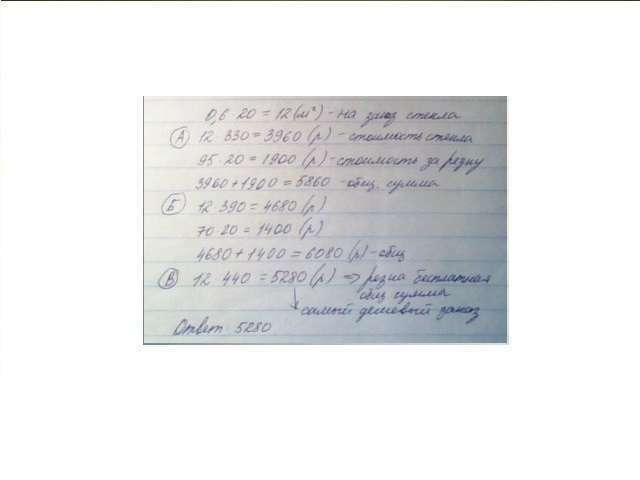 0,6 · 20 = 12 (м²) - на заказ стекла
А 12 · 330 = 3960 (р) - стоимость стекла
95 · 20 = 1900 (р) - стоимость за резку
3960 + 1900 = 5860 - общ. сумма
Б 12 · 390 = 4680 (р)
70 · 20 = 1400 (р)
4680 + 1400 = 6080 (р) - общ
В 12 · 440 = 5280 (р) => резка бесплатная
общ сумма
самый дешевый заказ
Ответ: 5280